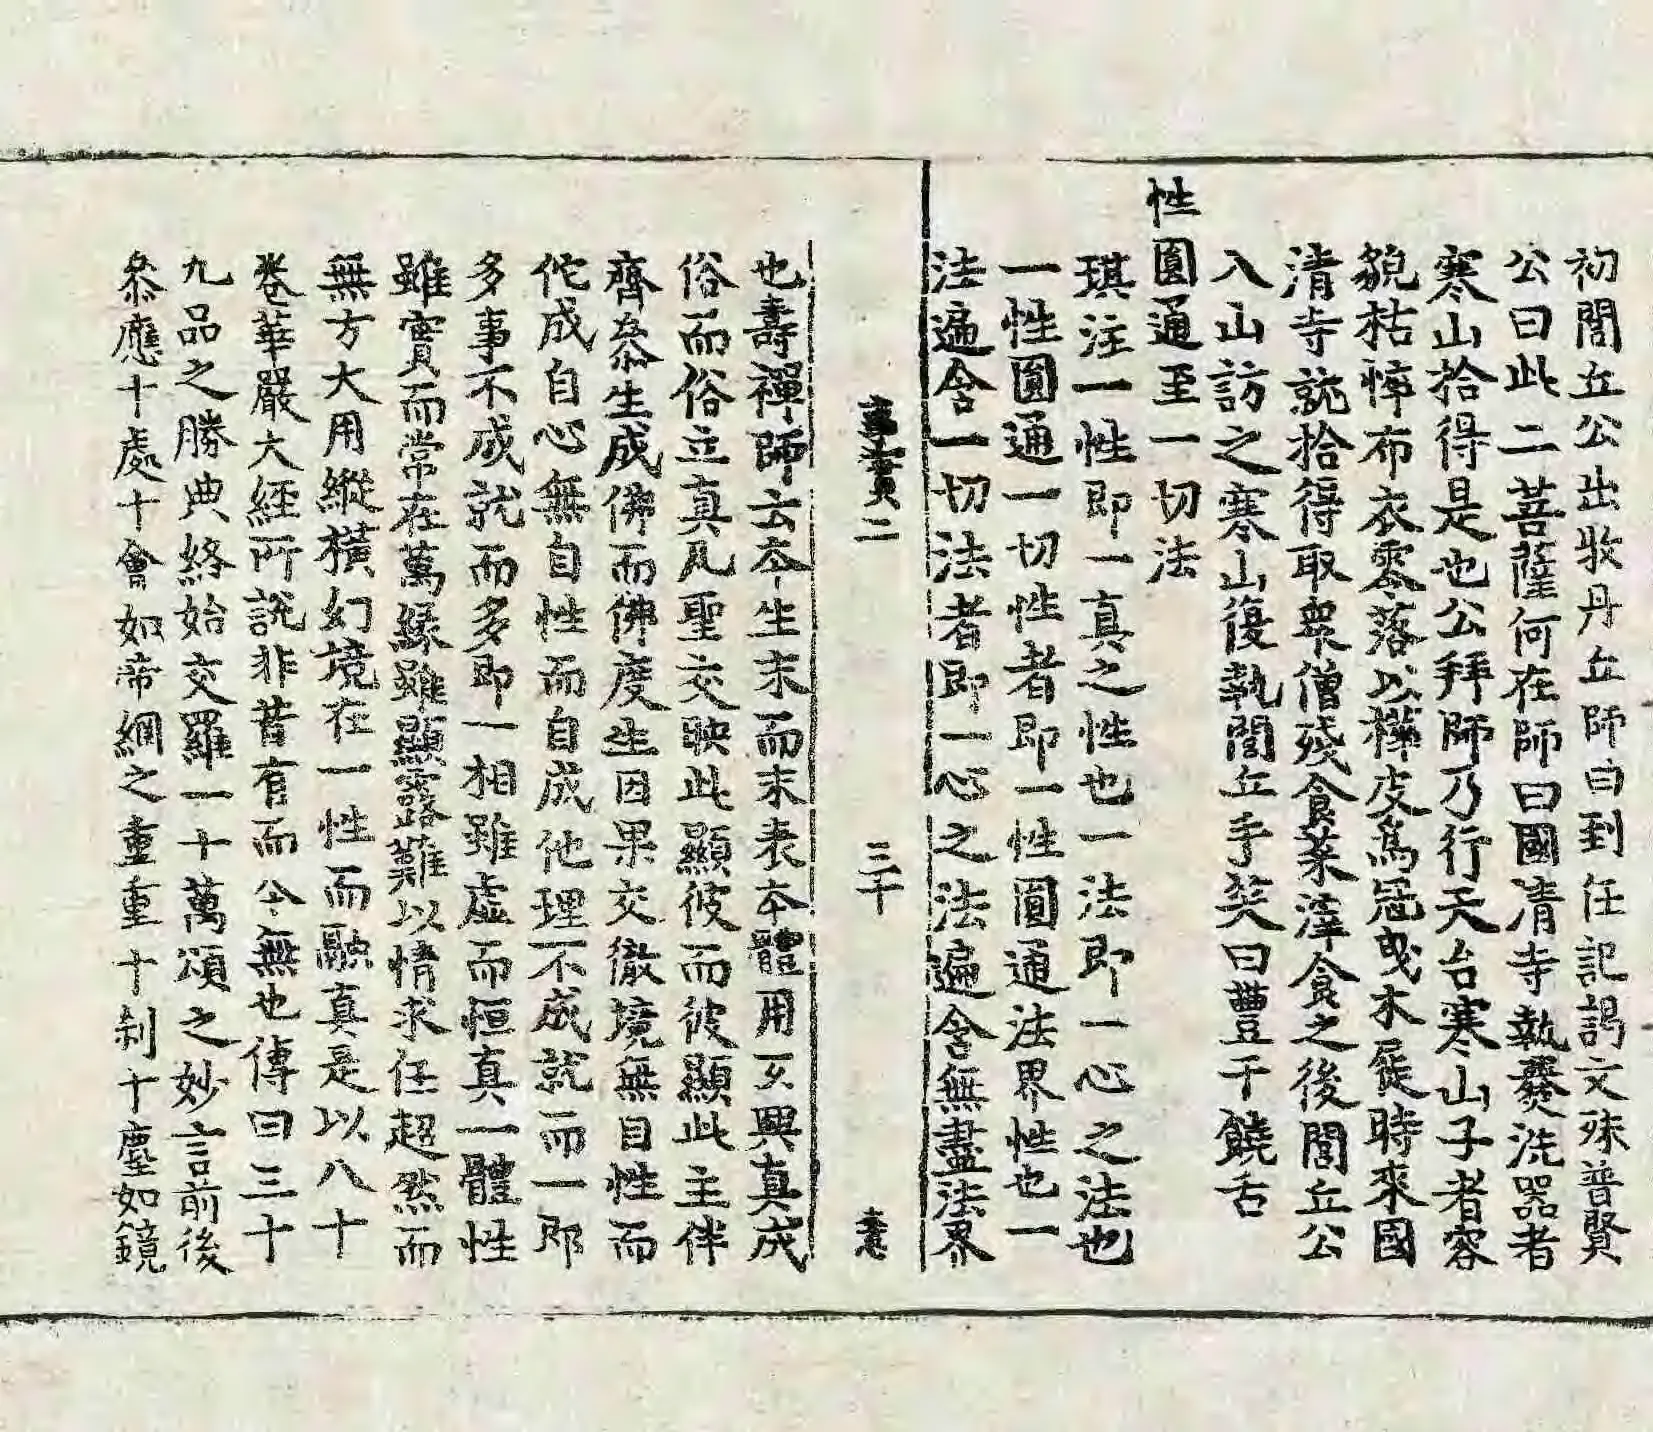 初閭丘公出牧丹丘師曰到任記謁文殊普賢
公曰此二菩薩何在師曰國清寺執爨洗器者
寒山拾得是也公拜師乃行天台寒山子者容
貌枯悴布衣零落以樺皮爲冠曳木屐時來國
清寺就拾得取衆僧殘食菜滓食之後閭丘公
入山訪之寒山復執閭丘手笑曰豊干饒舌
性圓通至一切法
琪注一性即一真之性也一法即一心之法也
一性圓通一切性者即一性圓通法界性也一
法遍含一切法者即一心之法遍含無盡法界
二
三十
也壽禪師云夲生末而末表夲體用㒷真成
俗而俗立真凡聖交映此顯彼而彼顯此主伴
齊叅生成佛而佛度生因果交徹境無自性而
佗成自心無自性而自成他理不成就而一即
多事不成就而多即一相雖虛而恒真一體性
雖實而常在萬緣雖顯露難以情求任超然而
無方大用縱橫幻境在一性而融真是以八十
卷華嚴大經所說非昔有而今無也傳曰三十
九品之勝典終始交羅一十萬頌之妙言前後
叅應十處十會如帝網之重重十刹十塵如鏡